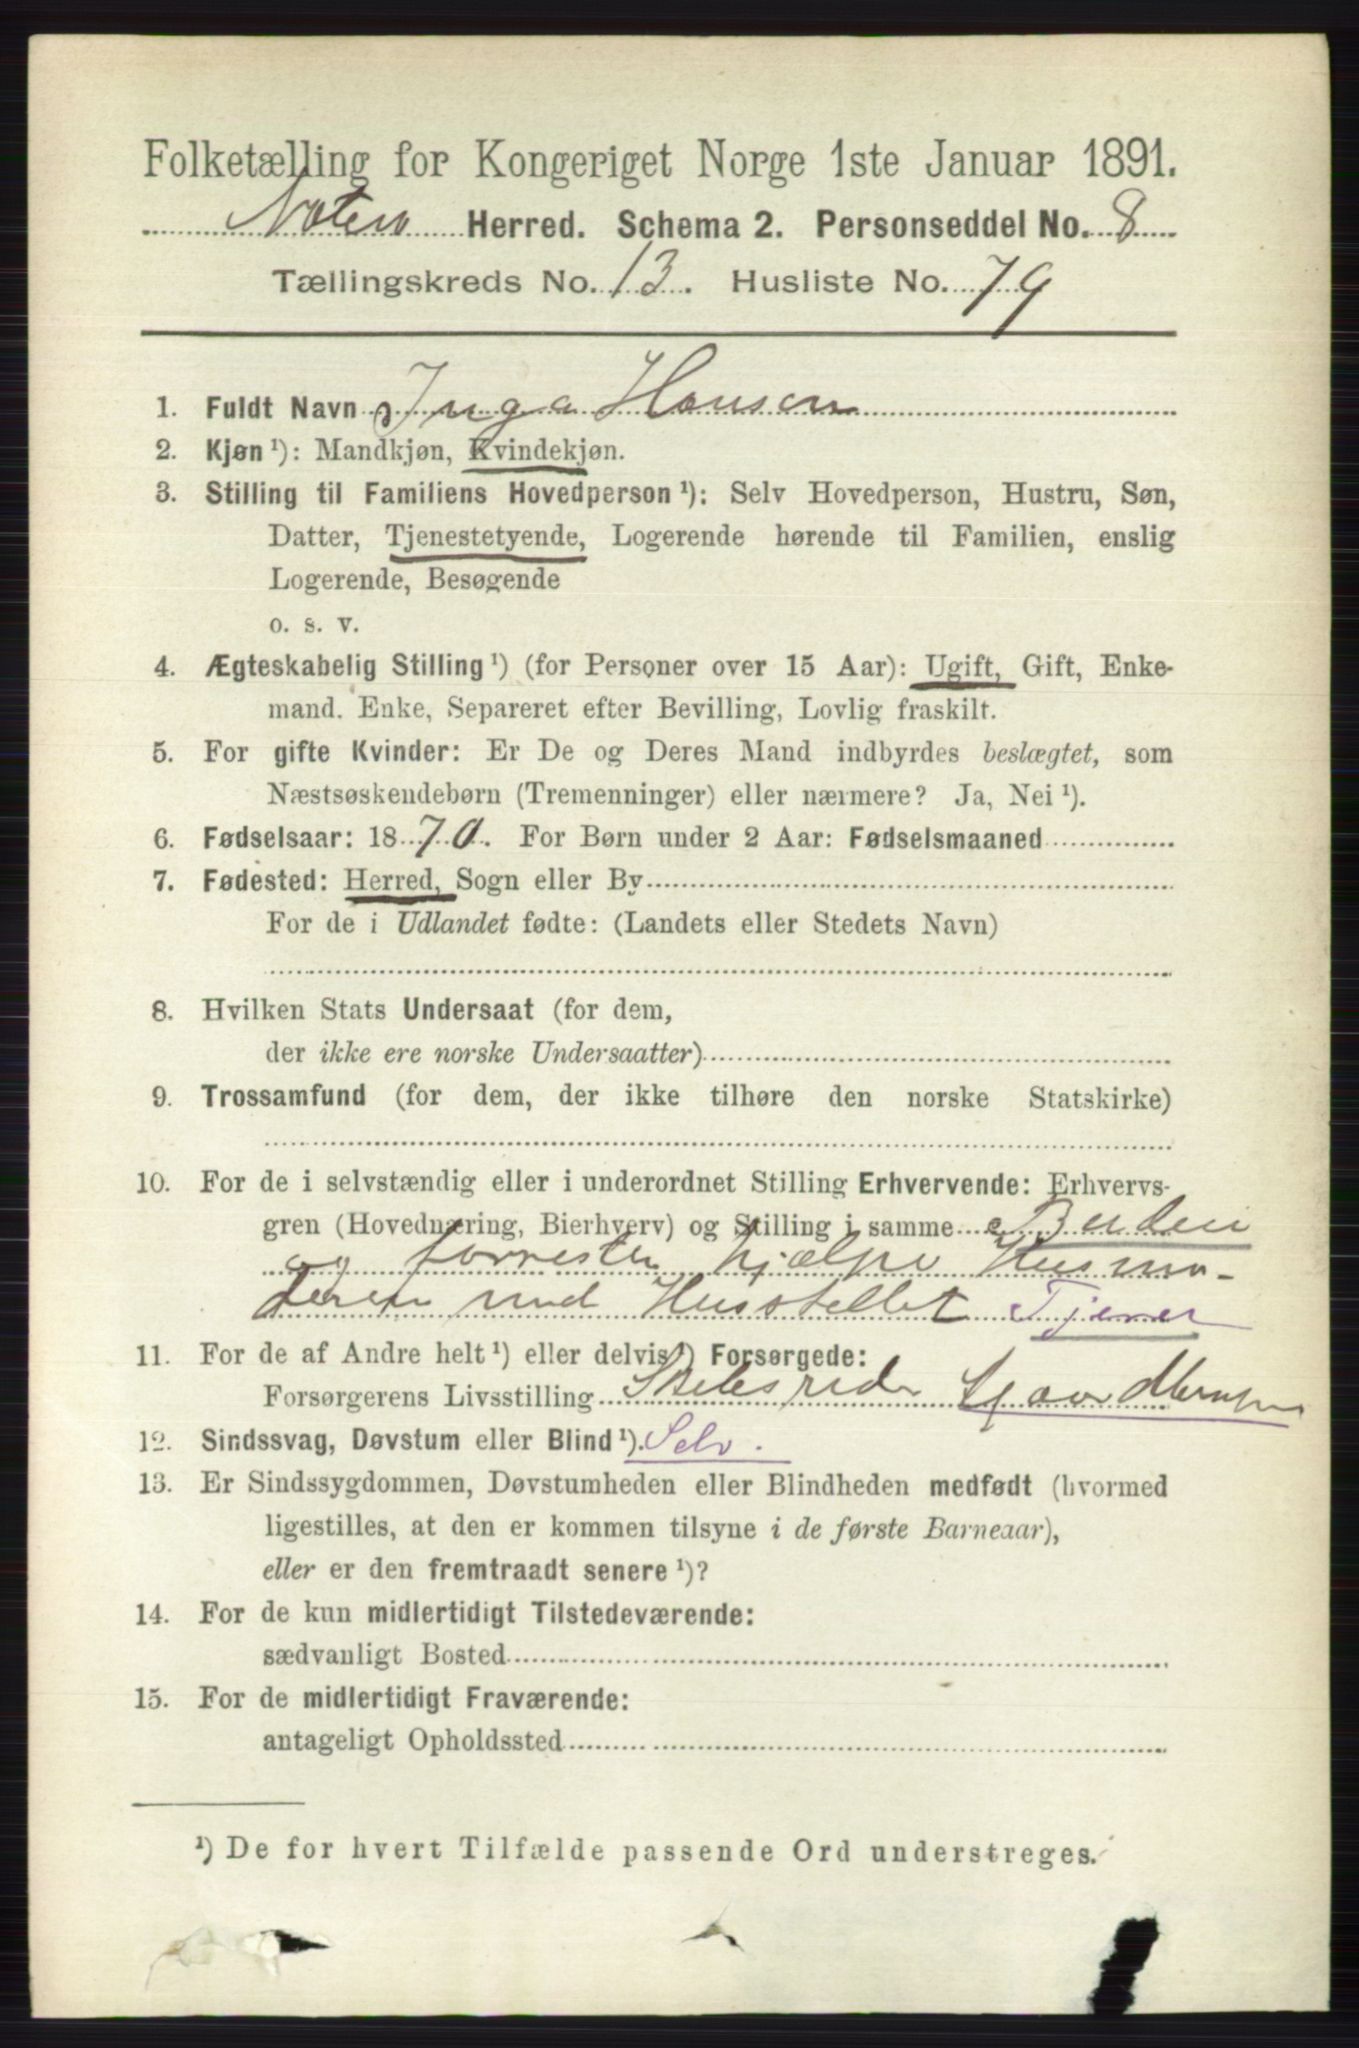 Folketælling for Kongeriget Norge 1ste Januar 1891.
Nøterø Herred. Schema 2. Personseddel No. 8
Tællingskreds No. 13. Husliste No. 79
1. Fuldt Navn Inga Hansen
2. Kjøn ¹): Mandkjøn, Kvindekjøn.
3. Stilling til Familiens Hovedperson ¹): Selv Hovedperson, Hustru, Søn,
Datter, Tjenestetyende, Logerende hørende til Familien, enslig
Logerende, Besøgende
o. s. v.
4. Ægteskabelig Stilling ¹) (for Personer over 15 Aar): Ugift, Gift, Enke-
mand. Enke, Separeret efter Bevilling, Lovlig fraskilt.
5. For gifte Kvinder: Er De og Deres Mand indbyrdes beslægtet, som
Næstsøskendebørn (Tremenninger) eller nærmere? Ja, Nei ¹).
6. Fødselsaar: 1870. For Børn under 2 Aar: Fødselsmaaned
7. Fødested: Herred, Sogn eller By
For de i Udlandet fødte: (Landets eller Stedets Navn)
8. Hvilken Stats Undersaat (for dem,
der ikke ere norske Undersaatter)
9. Trossamfund (for dem, der ikke tilhøre den norske Statskirke)
10. For de i selvstændig eller i underordnet Stilling Erhvervende: Erhvervs-
gren (Hovednæring, Bierhverv) og Stilling i samme Budeie
og forresten hjælpe Husmo-
deren med Husstellet Tjener
11. For de af Andre helt ¹) eller delvis ¹) Forsørgede:
Forsørgerens Livsstilling Skibsreder
12. Sindssvag, Døvstum eller Blind ¹). Selv.
13. Er Sindssygdommen, Døvstumheden eller Blindheden medfødt (hvormed
ligestilles, at den er kommen tilsyne i de første Barneaar),
eller er den fremtraadt senere ¹)?
14. For de kun midlertidigt Tilstedeværende:
sædvanligt Bosted
15. For de midlertidigt Fraværende:
antageligt Opholdssted
¹) De for hvert Tilfælde passende Ord understreges.